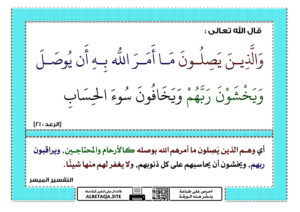 قال الله تعالى :
وَالَّذِينَ يَصِلُونَ مَا أَمَرَ اللَّهُ بِهِ أَن يُوصَلَ
وَيَخْشَوْنَ رَبَّهُمْ وَيَخَافُونَ سُوءَ الْحِسَابِ
[الرعد : ٢١]
أي وهم الذين يَصِلون ما أمرهم الله بوصله كالأرحام والمحتاجين, ويراقبون
ربهم, ويخشون أن يحاسبهم على كل ذنوبهم, ولا يغفر لهم منها شيئًا.
التفسير الميسر
احرص على طباعة
ونشر هذه الورقة
ALBETAQA.SITE